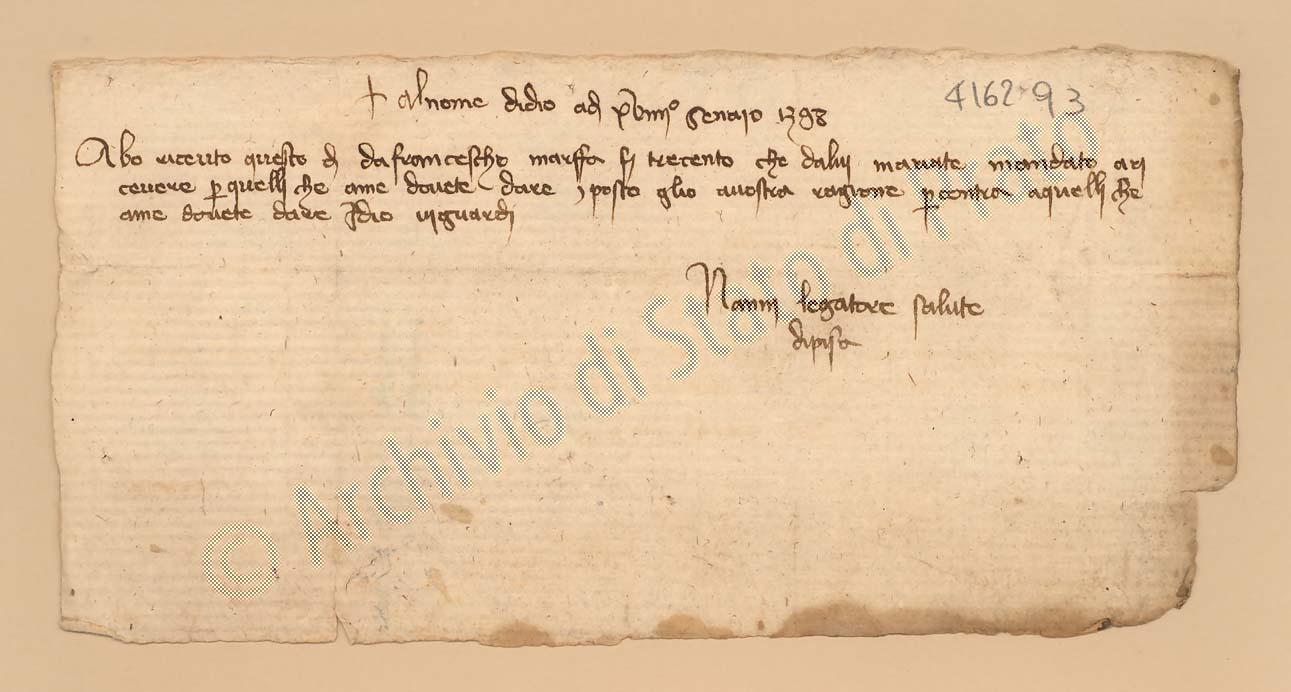 + al nome di dio adj xviiijº genaio 1398
4162-93
Abo riceuto questo dj da francescho marffa fj trecento che da luj mavate mandato a ri
cevere per quellj che a me dovete dare, posto gl'io a vostra ragione per contra a quellj che
a me dovete dare Idio vi guardj
Nannj legatore salute
di pisa
© Archivio di Stato di Prato